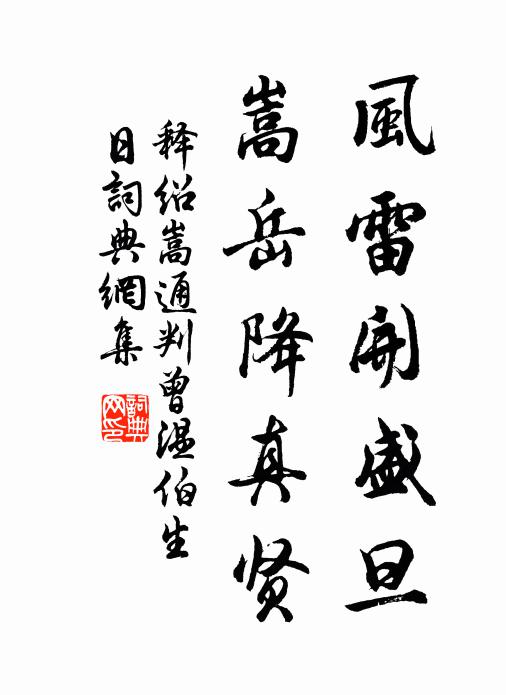 風雷開盛旦
嵩岳降真贤
释绍嵩通判曾温伯生
日詞典網集
詞典
网印